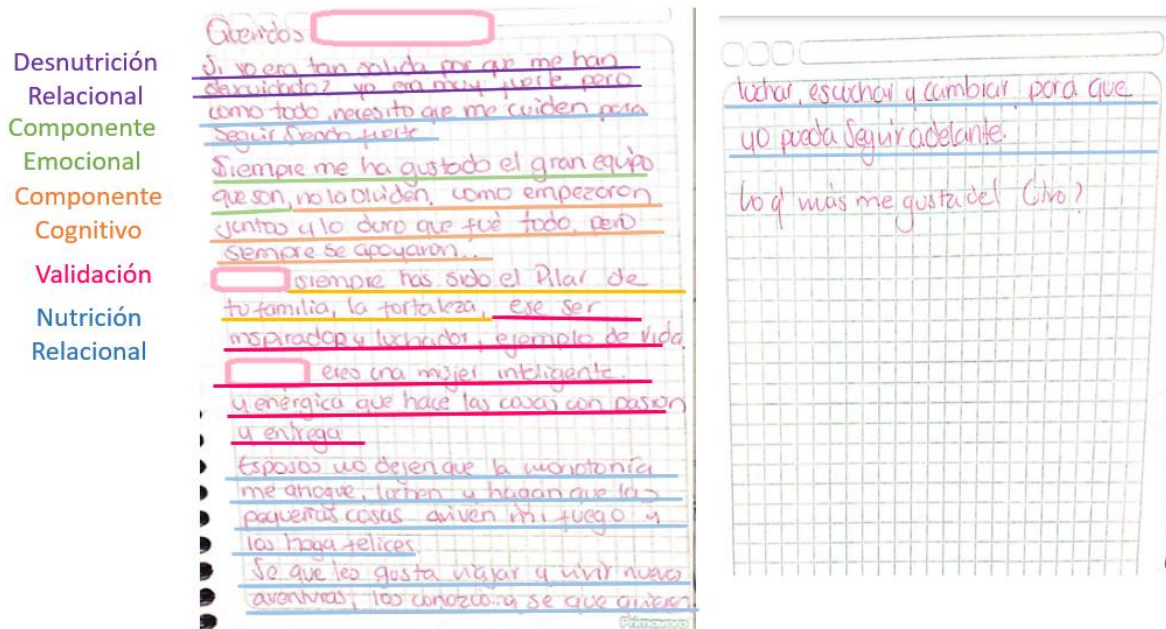 Desnutrición
Relacional
Componente
Emocional
Componente
Cognitivo
Validación
Nutrición
Relacional
Queridos
Si yo era tan solida por que me han
descuidado? yo era muy fuerte pero
como todo, necesito que me cuiden para
seguir siendo fuerte
Siempre me ha gustado el gran equipo
que son, no lo olviden, como empezaron
juntos y lo duro que fué todo, pero
siempre se apoyaron..
siempre has sido el Pilar de
tu familia, la fortaleza, ese ser
inspirador y luchador, ejemplo de vida.
eres una mujer inteligente.
y enérgica que hace las cosas con pasión
y entrega
Esposos no dejen que la monotonía
me ahogue, luchen y hagan que las
pequeñas cosas aviven mi fuego y
los haga felices.
Se que les gusta viajar y vivir nuevas
aventuras, los conozco y se que quieren
Primavera
luchar, escuchar y cambiar, para que
yo pueda seguir adelante.
Lo q' más me gusta del